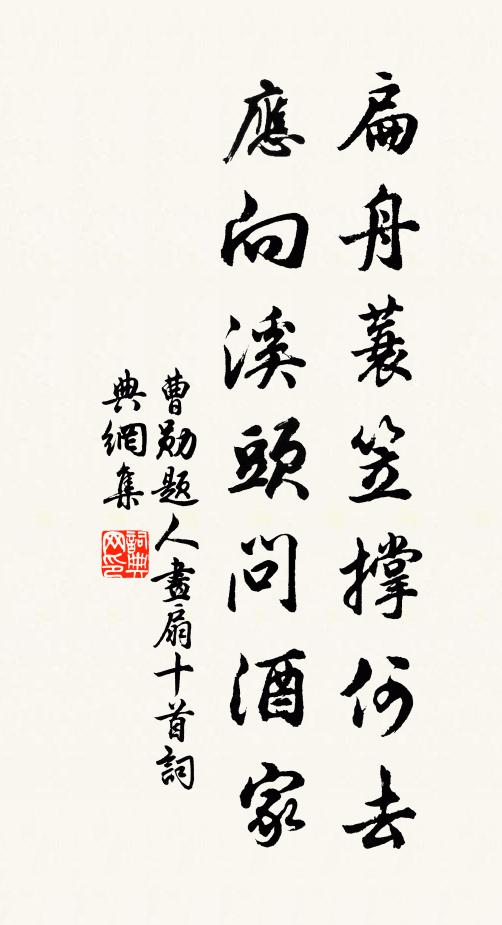 扁舟蓑笠撐何去
應向溪頭問酒家
曹勛題人畫扇十首詞
典網集
詞典網印